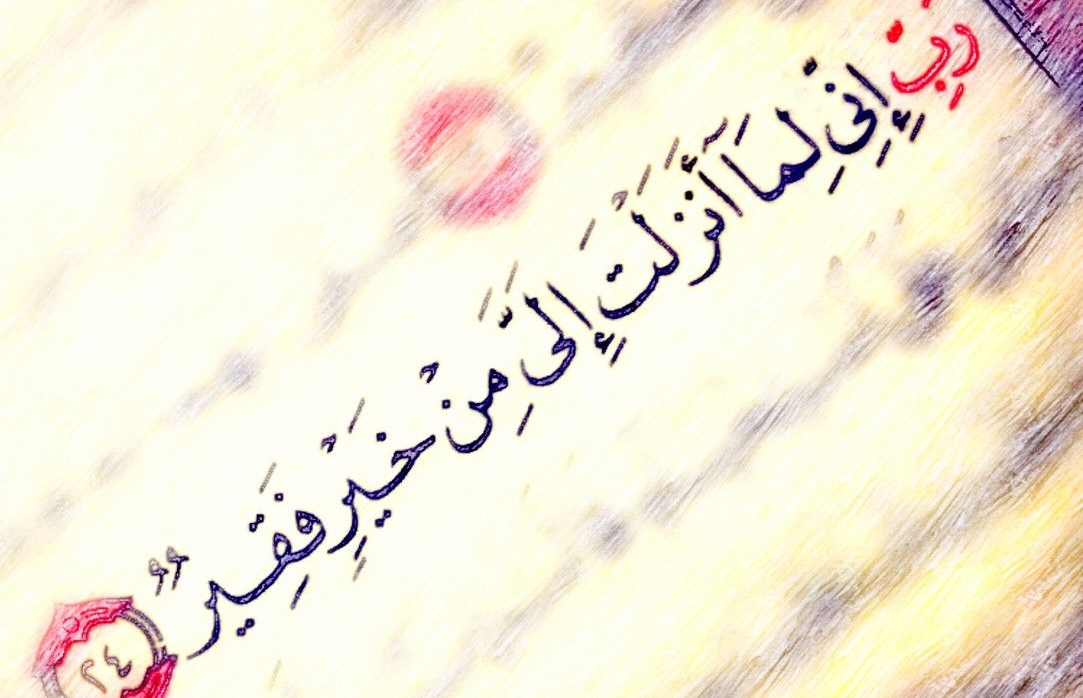 رَبِّ إِنِّي لِمَا أَنزَلْتَ إِلَيَّ مِنْ خَيْرٍ فَقِيرٌ ٢٤